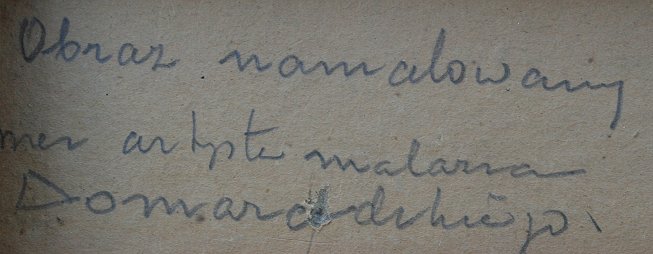 Obraz namalowany
artystę malarza
Domaradzkiego